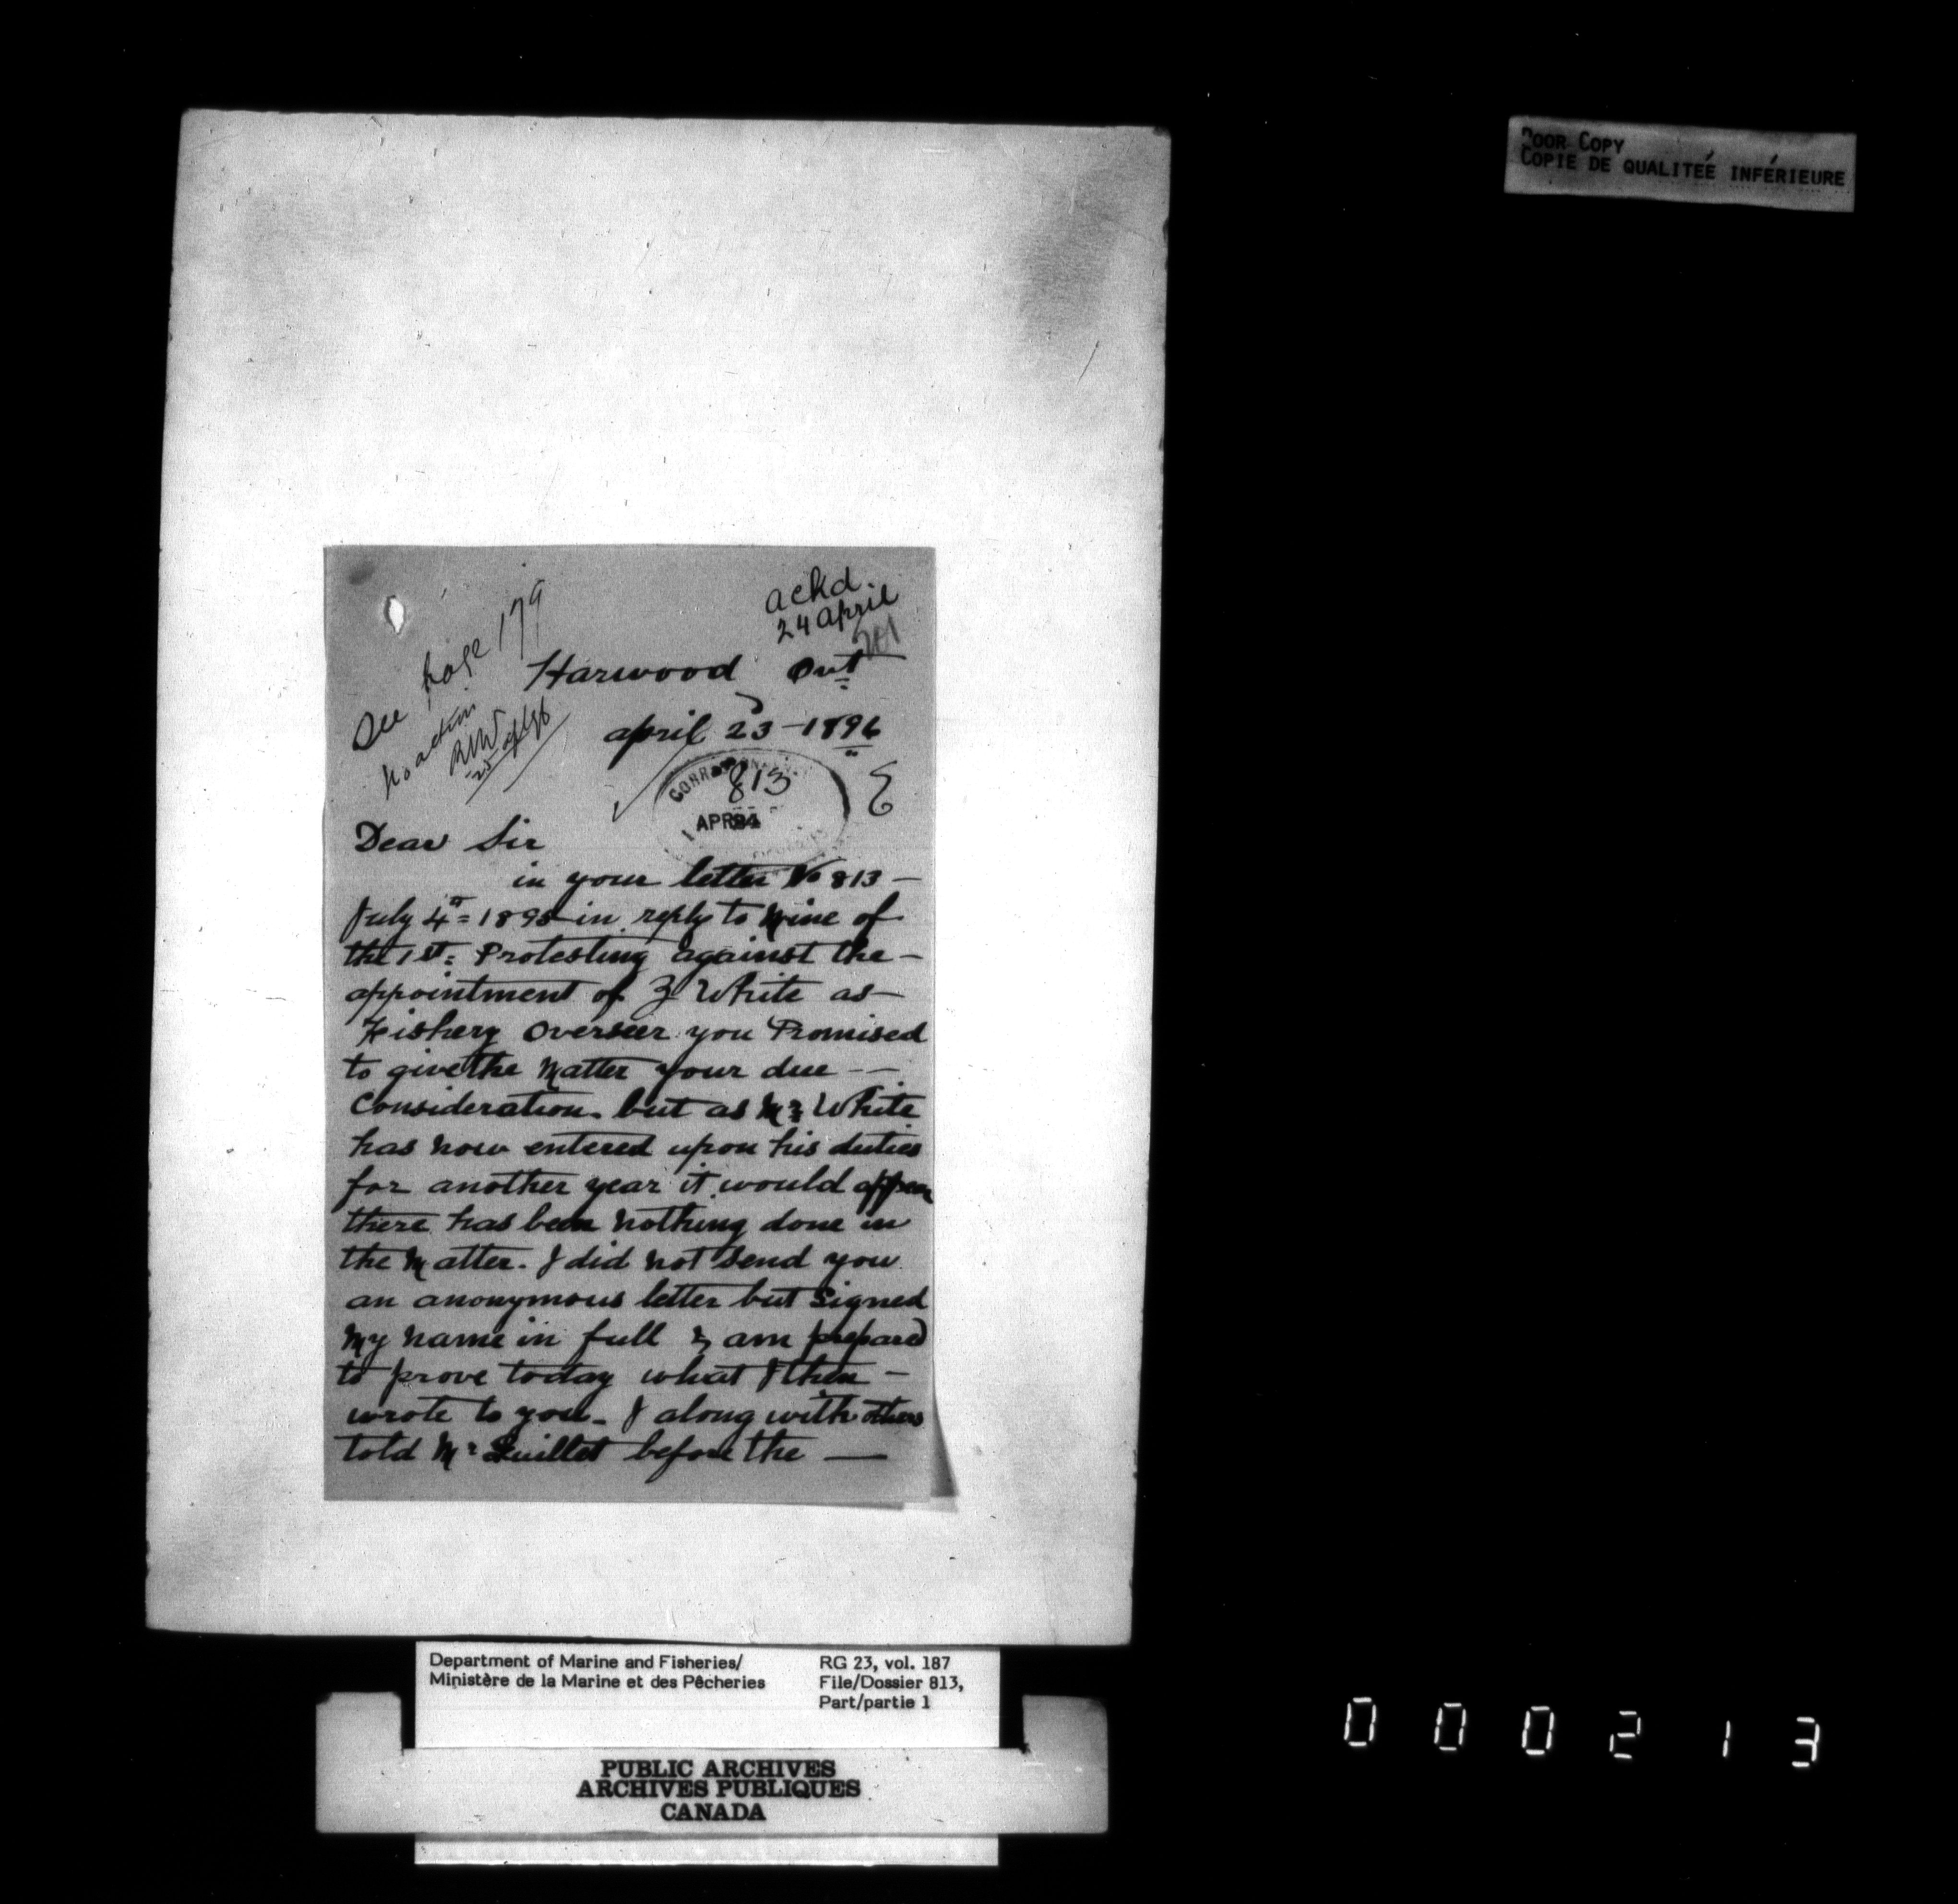 POOR COPY
COPIE DE QUALITEÉ INFÉRIEURE
ackd.
24 april
See page 179
no action
Harwood Ont
april 23 - 1896
813
APR 24
Dear Sir
in your letter No 813 -
July 4th = 1895 in reply to Mine of
the 1st = Protesting against the -
appointment of Z White as -
Fishery Overseer you Promised
to give the Matter your due - -
Consideration. but as Mr White
has now entered upon his duties
for another year it would appear
there has been nothing done in
the Matter. I did not Send you
an anonymous letter but Signed
My name in full & am prepared
to prove today what I then -
wrote to you - I along with others
told Mr Guillet before the —
Department of Marine and Fisheries/
Ministère de la Marine et des Pêcheries
RG 23, vol. 187
File/Dossier 813,
Part/partie 1
PUBLIC ARCHIVES
ARCHIVES PUBLIQUES
CANADA
000213